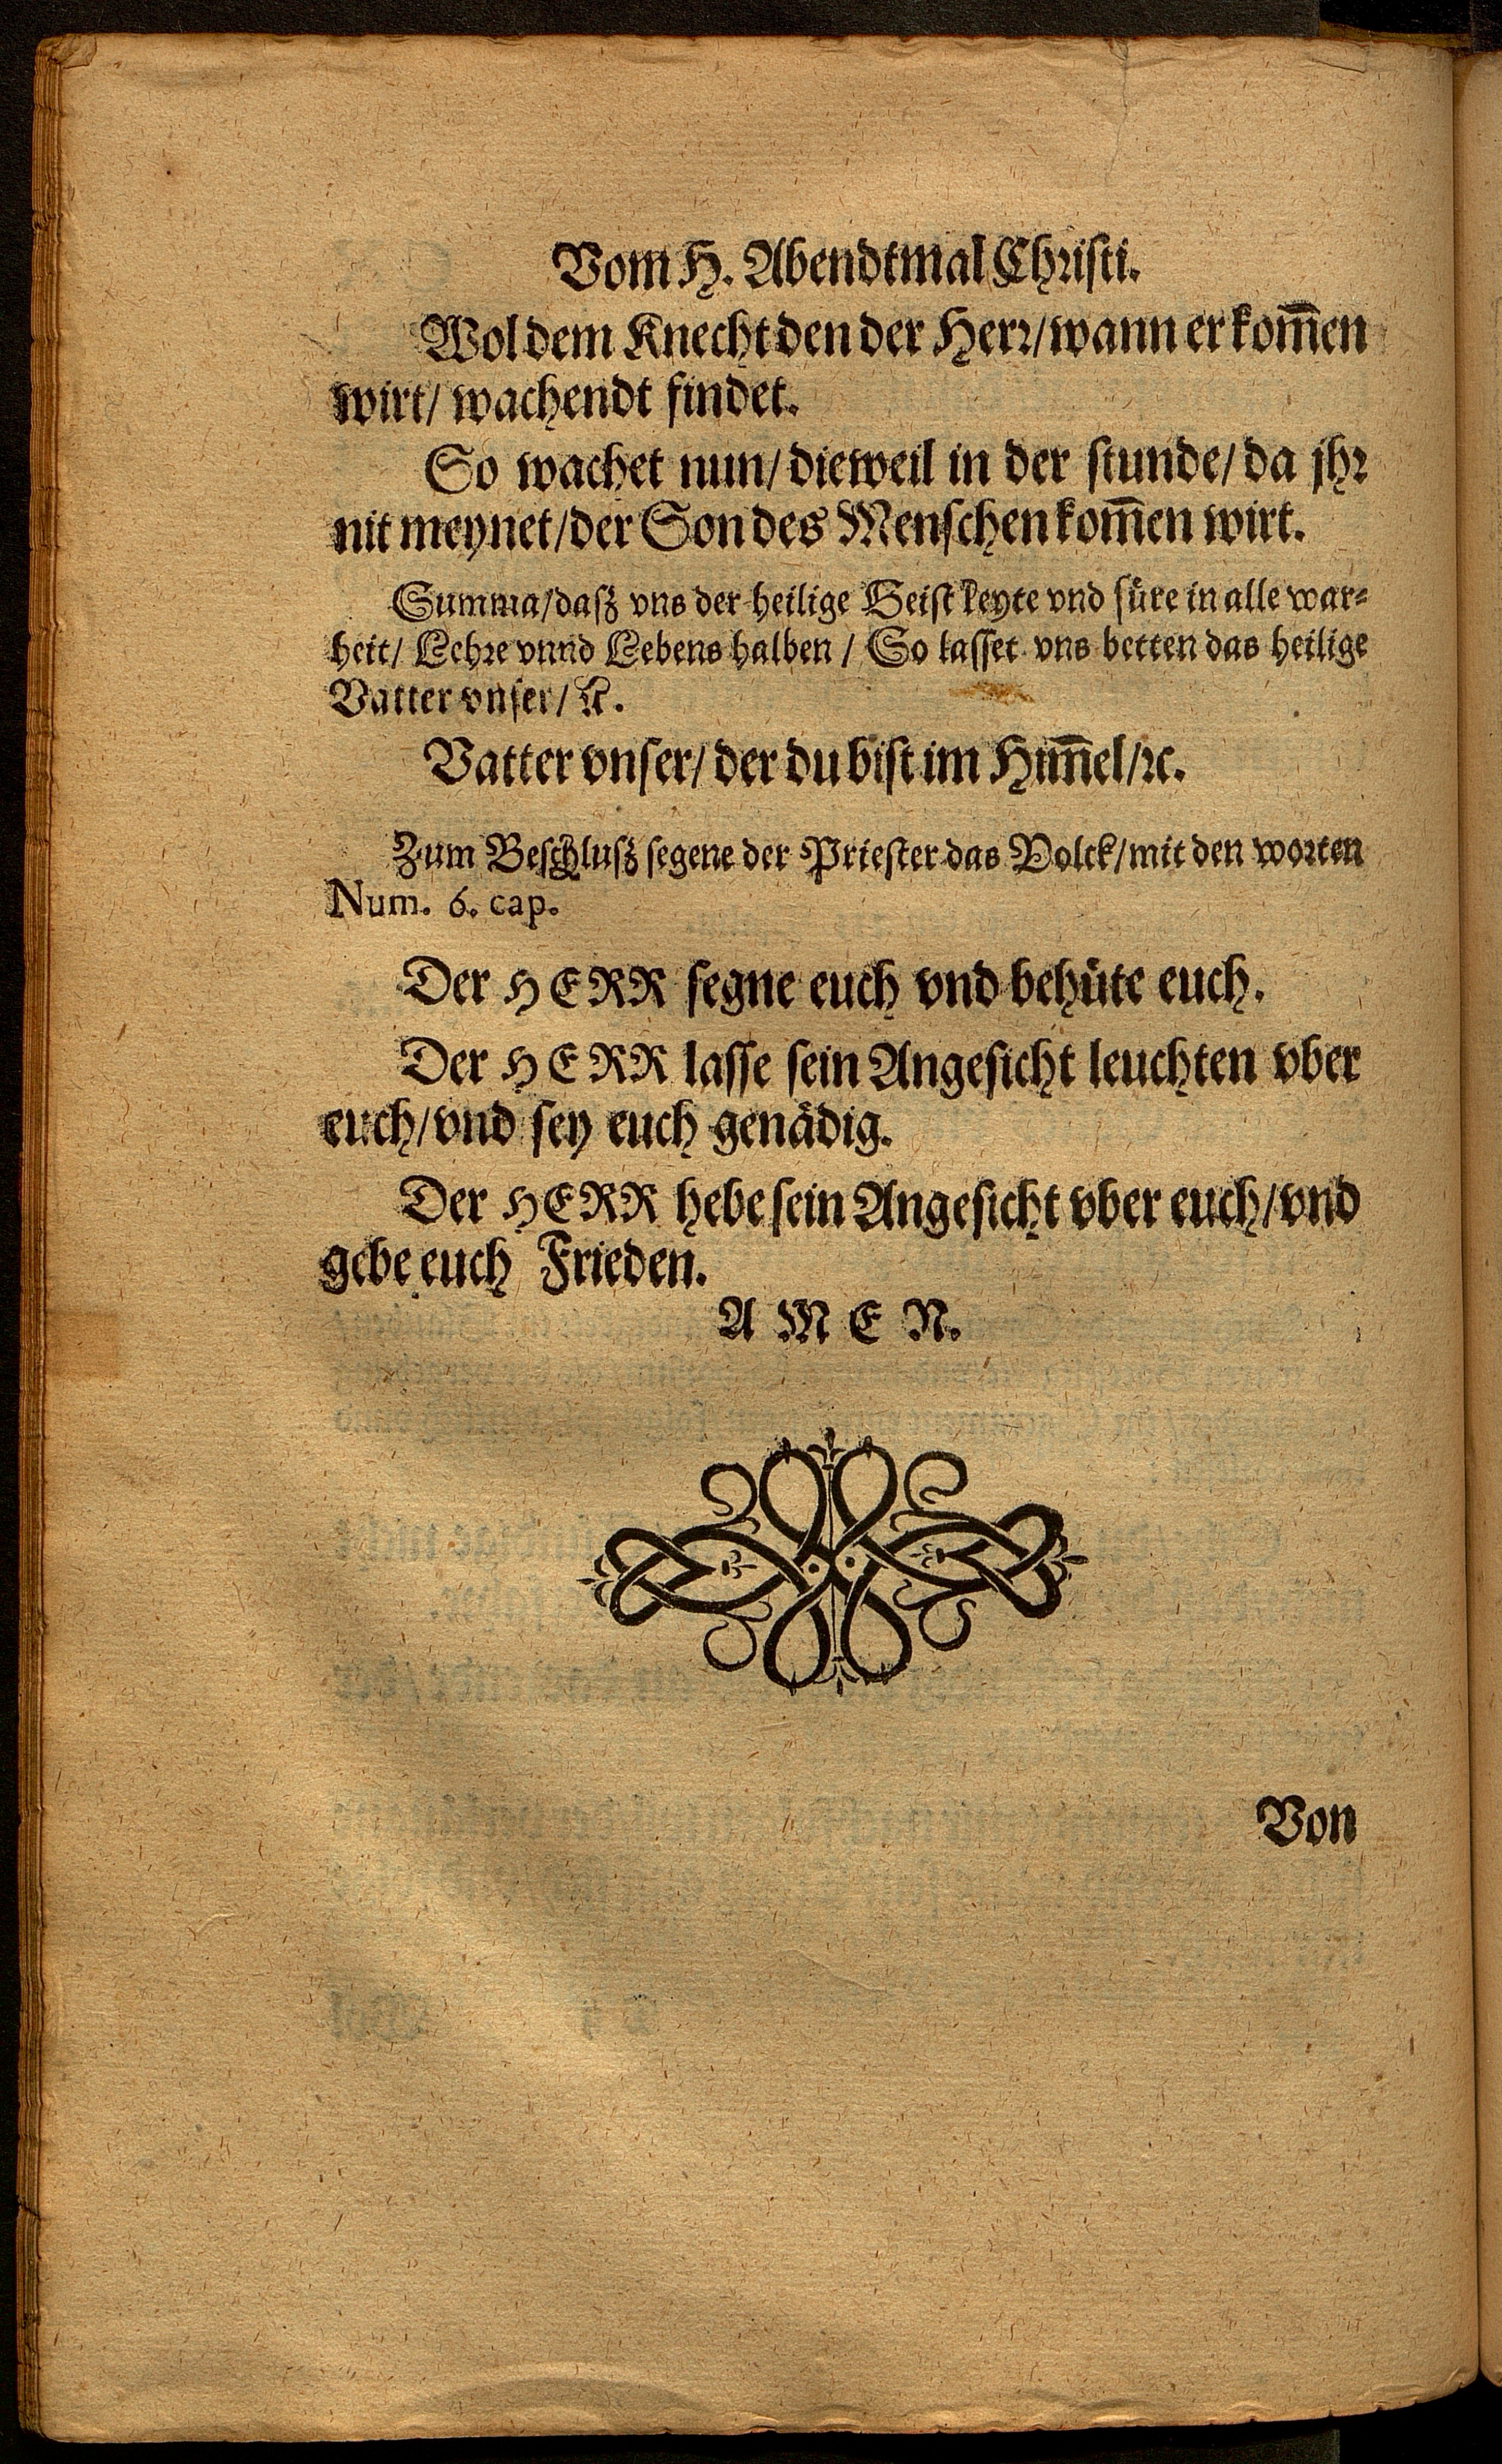 Vom H. Abendtmal Christi.
Wol dem Knecht den der Herr/wann er kom̃en
wirt/ wachendt findet.
So wachet nun/ dieweil in der stunde/ da jhr
nit meynet/der Son des Menschen kom̃en wirt.
Summa/daß vns der heilige Geist leyte vnd füre in alle war-
heit/ Lehre vnnd Lebens halben / So lasset vns betten das heilige
Vatter vnser/ ꝛc.
Vatter vnser/ der du bist im Him̃el/ꝛc.
Zum Beschluß segene der Priester das Volck/mit den worten
Num. 6. cap.
Der HERR segne euch vnd behüte euch.
Der HERR lasse sein Angesicht leuchten vber
euch/vnd sey euch genädig.
Der HERR hebe sein Angesicht vber euch/vnd
gebe euch Frieden.
A M E N.
Von